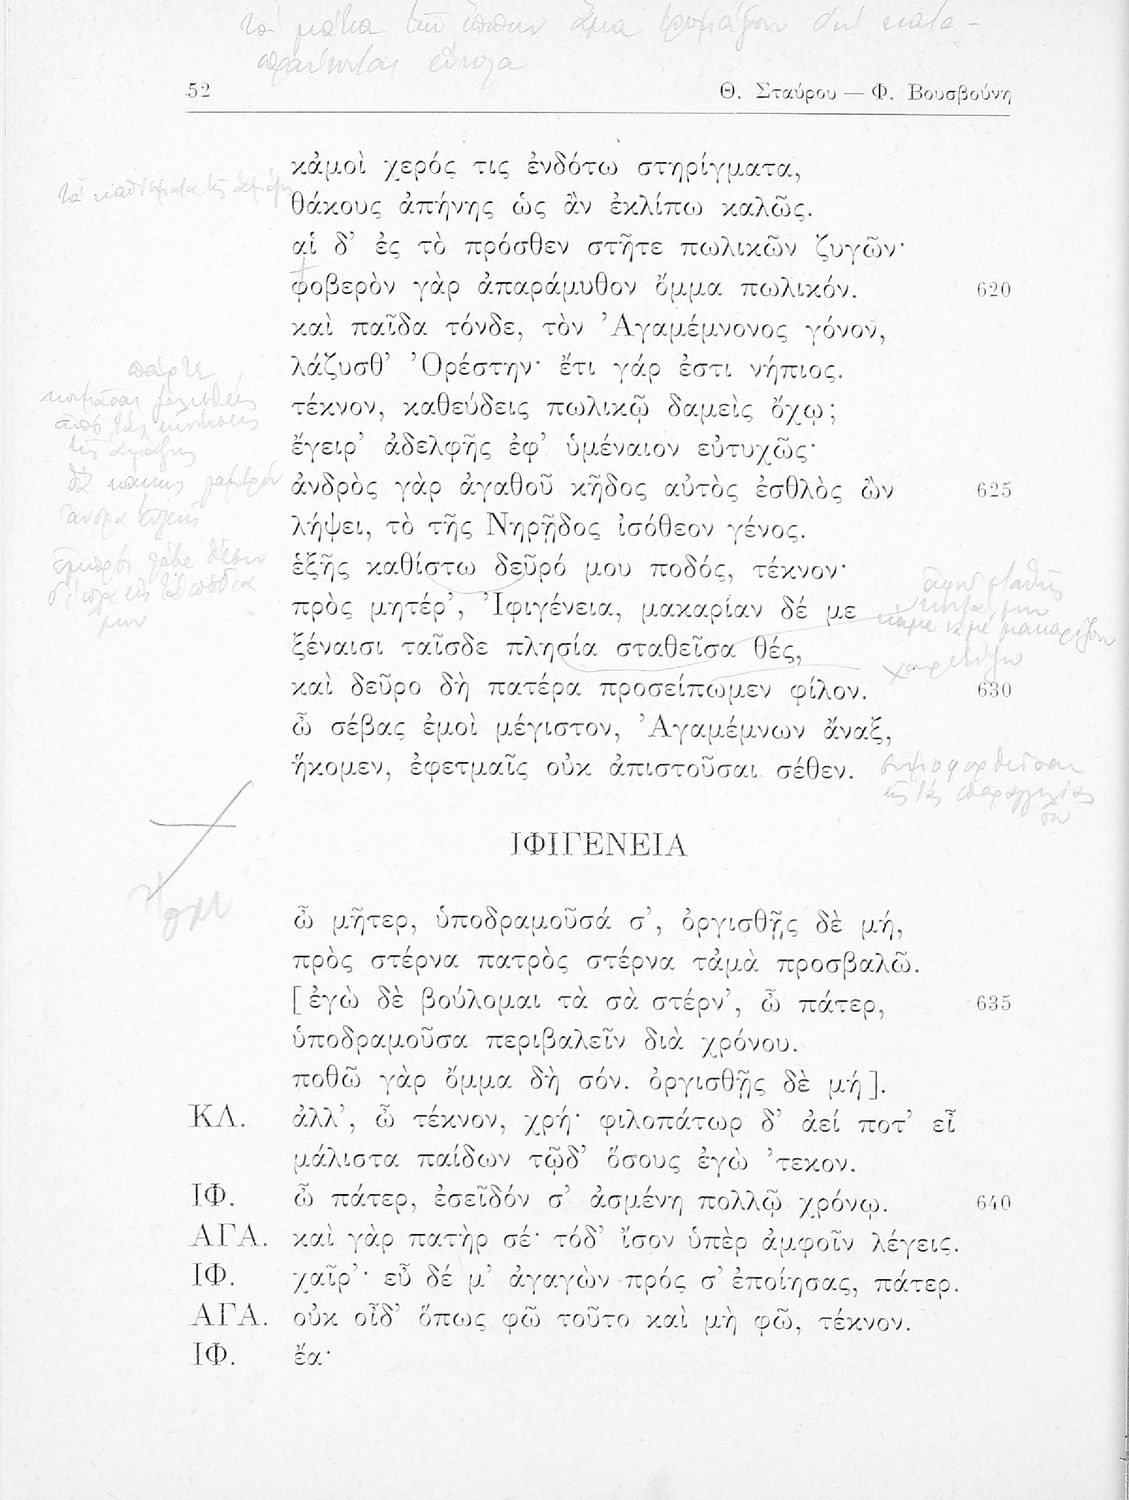 52
Θ. Σταύρου — Φ. Βουσβούνη
κἀμοὶ χερός τις ἐνδότω στηρίγματα,
θάκους ἀπήνης ὡς ἂν ἐκλίπω καλῶς.
αἱ δ’ ἐς τὸ πρόσθεν στῆτε πωλικῶν ζυγῶν·
φοβερὸν γὰρ ἀπαράμυθον ὄμμα πωλικόν. 620
καὶ παῖδα τόνδε, τὸν Ἀγαμέμνονος γόνον,
λάζυσθ’ Ὀρέστην· ἔτι γάρ ἐστι νήπιος.
τέκνον, καθεύδεις πωλικῷ δαμεὶς ὄχῳ;
ἔγειρ’ ἀδελφῆς ἐφ’ ὑμέναιον εὐτυχῶς·
ἀνδρὸς γὰρ ἀγαθοῦ κῆδος αὐτὸς ἐσθλὸς ὢν 625
λήψει, τὸ τῆς Νηρῇδος ἰσόθεον γένος.
ἑξῆς καθίστω δεῦρό μου ποδός, τέκνον·
πρὸς μητέρ’, Ἰφιγένεια, μακαρίαν δέ με
ξέναισι ταῖσδε πλησία σταθεῖσα θές,
καὶ δεῦρο δὴ πατέρα προσείπωμεν φίλον. 630
ὦ σέβας ἐμοὶ μέγιστον, Ἀγαμέμνων ἄναξ,
ἥκομεν, ἐφετμαῖς οὐκ ἀπιστοῦσαι σέθεν.
ΙΦΙΓΕΝΕΙΑ
ὦ μῆτερ, ὑποδραμοῦσά σ’, ὀργισθῇς δὲ μή,
πρὸς στέρνα πατρὸς στέρνα τἀμὰ προσβαλῶ.
[ἐγὼ δὲ βούλομαι τὰ σὰ στέρν’, ὦ πάτερ, 635
ὑποδραμοῦσα περιβαλεῖν διὰ χρόνου.
ποθῶ γὰρ ὄμμα δὴ σόν. ὀργισθῇς δὲ μή].
ΚΛ. ἀλλ’, ὦ τέκνον, χρή· φιλοπάτωρ δ’ ἀεί ποτ’ εἶ
μάλιστα παίδων τῷδ’ ὅσους ἐγὼ ’τεκον.
ΙΦ. ὦ πάτερ, ἐσεῖδόν σ’ ἀσμένη πολλῷ χρόνῳ. 640
ΑΓΑ. καὶ γὰρ πατὴρ σέ· τόδ’ ἴσον ὑπὲρ ἀμφοῖν λέγεις.
ΙΦ. χαῖρ’· εὖ δέ μ’ ἀγαγὼν πρός σ’ ἐποίησας, πάτερ.
ΑΓΑ. οὐκ οἶδ’ ὅπως φῶ τοῦτο καὶ μὴ φῶ, τέκνον.
ΙΦ. ἔα·